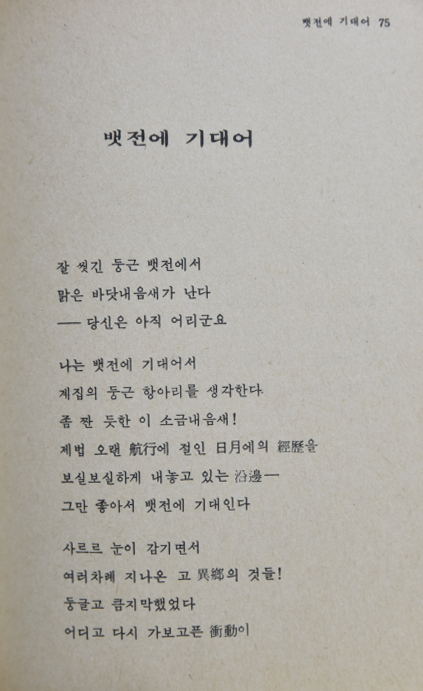 뱃전에 기대어 75
뱃전에 기대어
잘 씻긴 둥근 뱃전에서
맑은 바닷내음새가 난다
── 당신은 아직 어리군요
나는 뱃전에 기대어서
계집의 둥근 항아리를 생각한다.
좀 짠 듯한 이 소금내음새!
제법 오랜 航行에 절인 日月에의 經歷을
보실보실하게 내놓고 있는 沿邊─
그만 좋아서 뱃전에 기대인다
사르르 눈이 감기면서
여러차례 지나온 고 異鄕의 것들!
둥글고 큼지막했었다
어디고 다시 가보고픈 衝動이